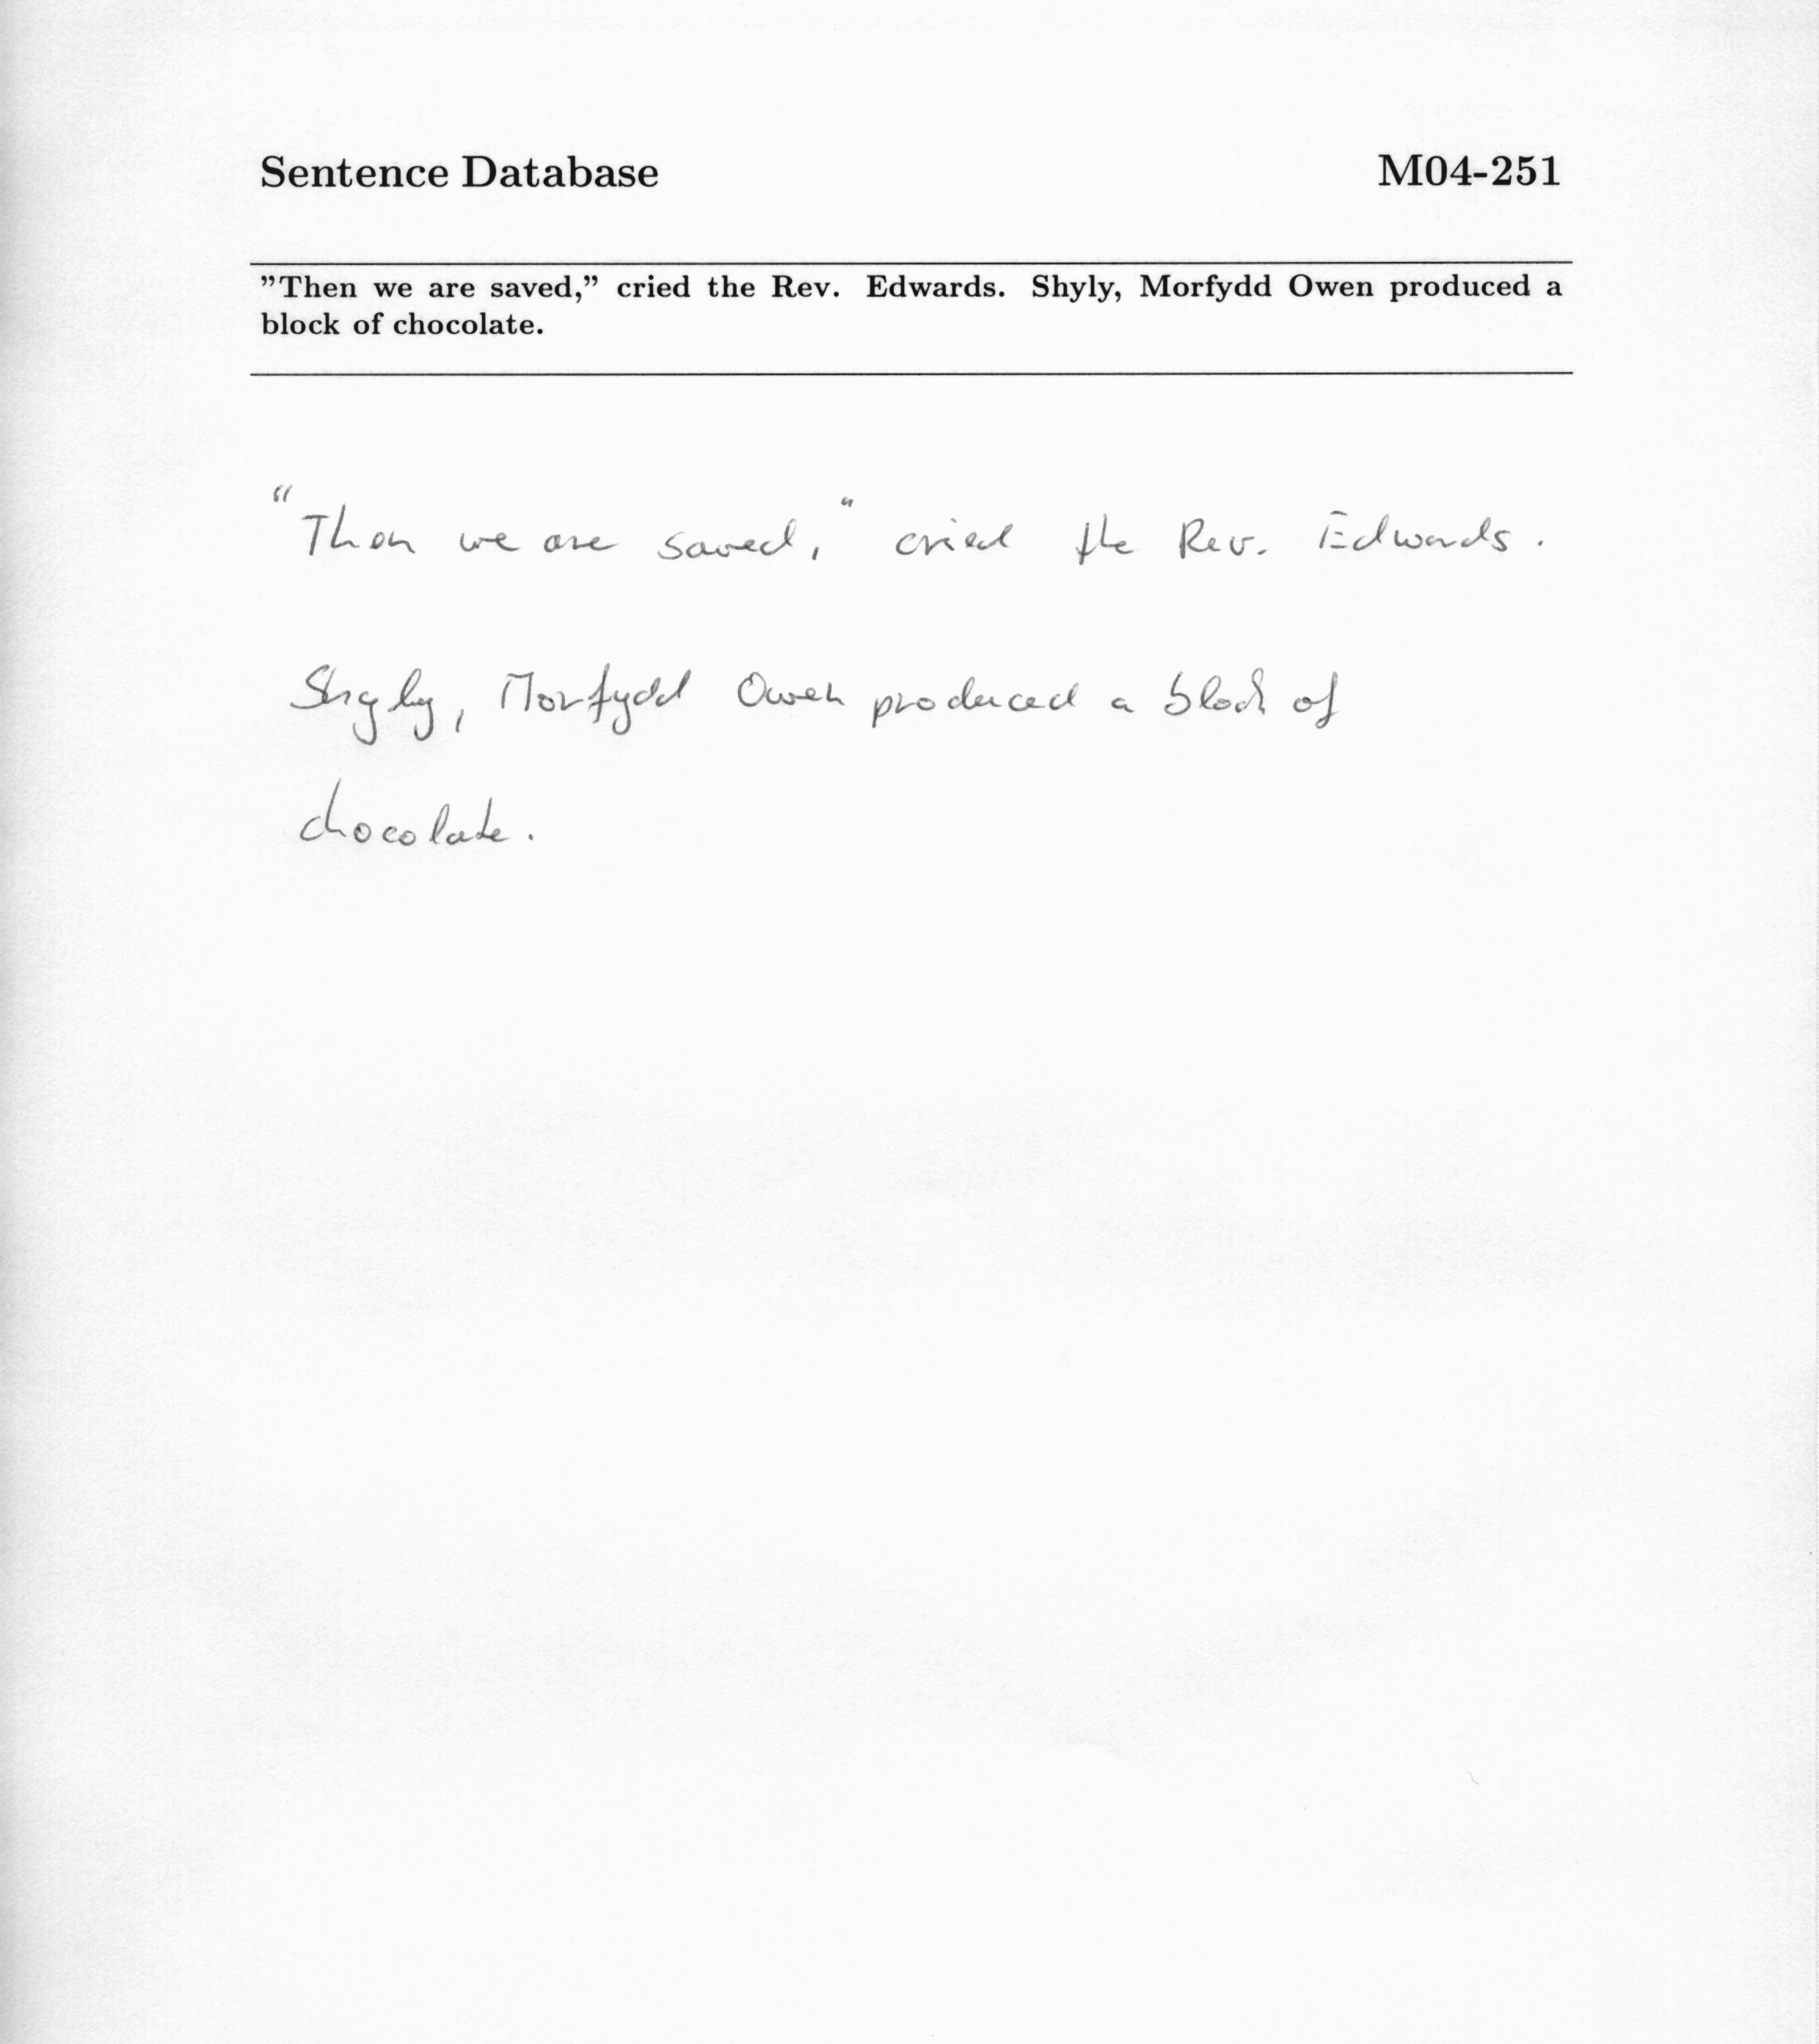 Sentence Database M04-251
"Then we are saved," cried the Rev. Edwards. Shyly, Morfydd Owen produced a
block of chocolate.
"Then we are saved," cried the Rev. Edwards.
Shyly, Morfydd Owen produced a block of
chocolate.